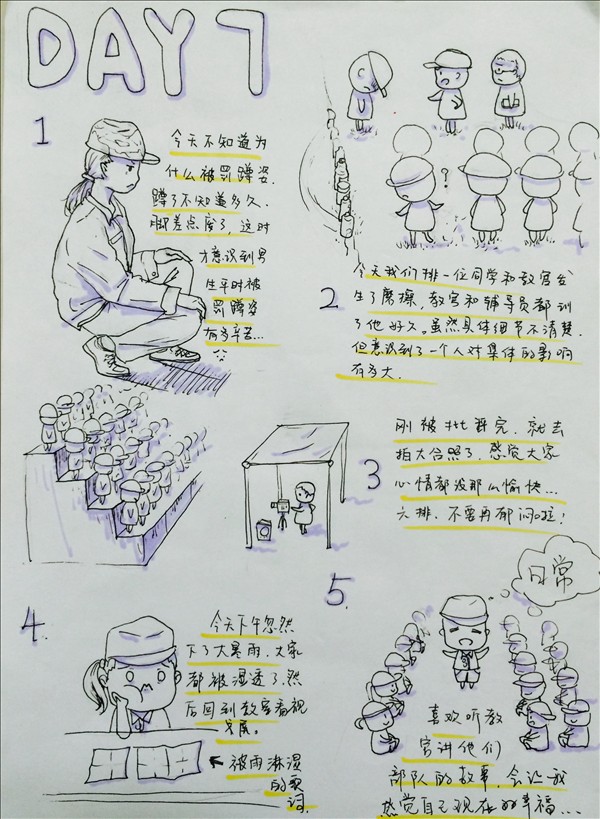 DAY 7
1
今天不知道为
什么被罚蹲姿.
蹲了不知道多久.
脚差点废了，这时
才意识到男
生平时被
罚蹲姿
有多辛苦...
?
2
今天我们排一位同学和教官发
生了摩擦，教官和辅导员都训
了他好久。虽然具体细节不清楚.
但意识到了一个人对集体的影响
有多大.
3
刚被批评完，就去
拍大合照了，感觉大家
心情都没那么愉快...
六排，不要再郁闷啦！
4.
今天下午忽然
下了大暴雨，大家
都被湿透了，然
后回到教室看视
频。
←被雨淋湿
的歌
词.
5.
日常
喜欢听教
官讲他们
部队的故事，会让我
感觉自己现在好幸福...